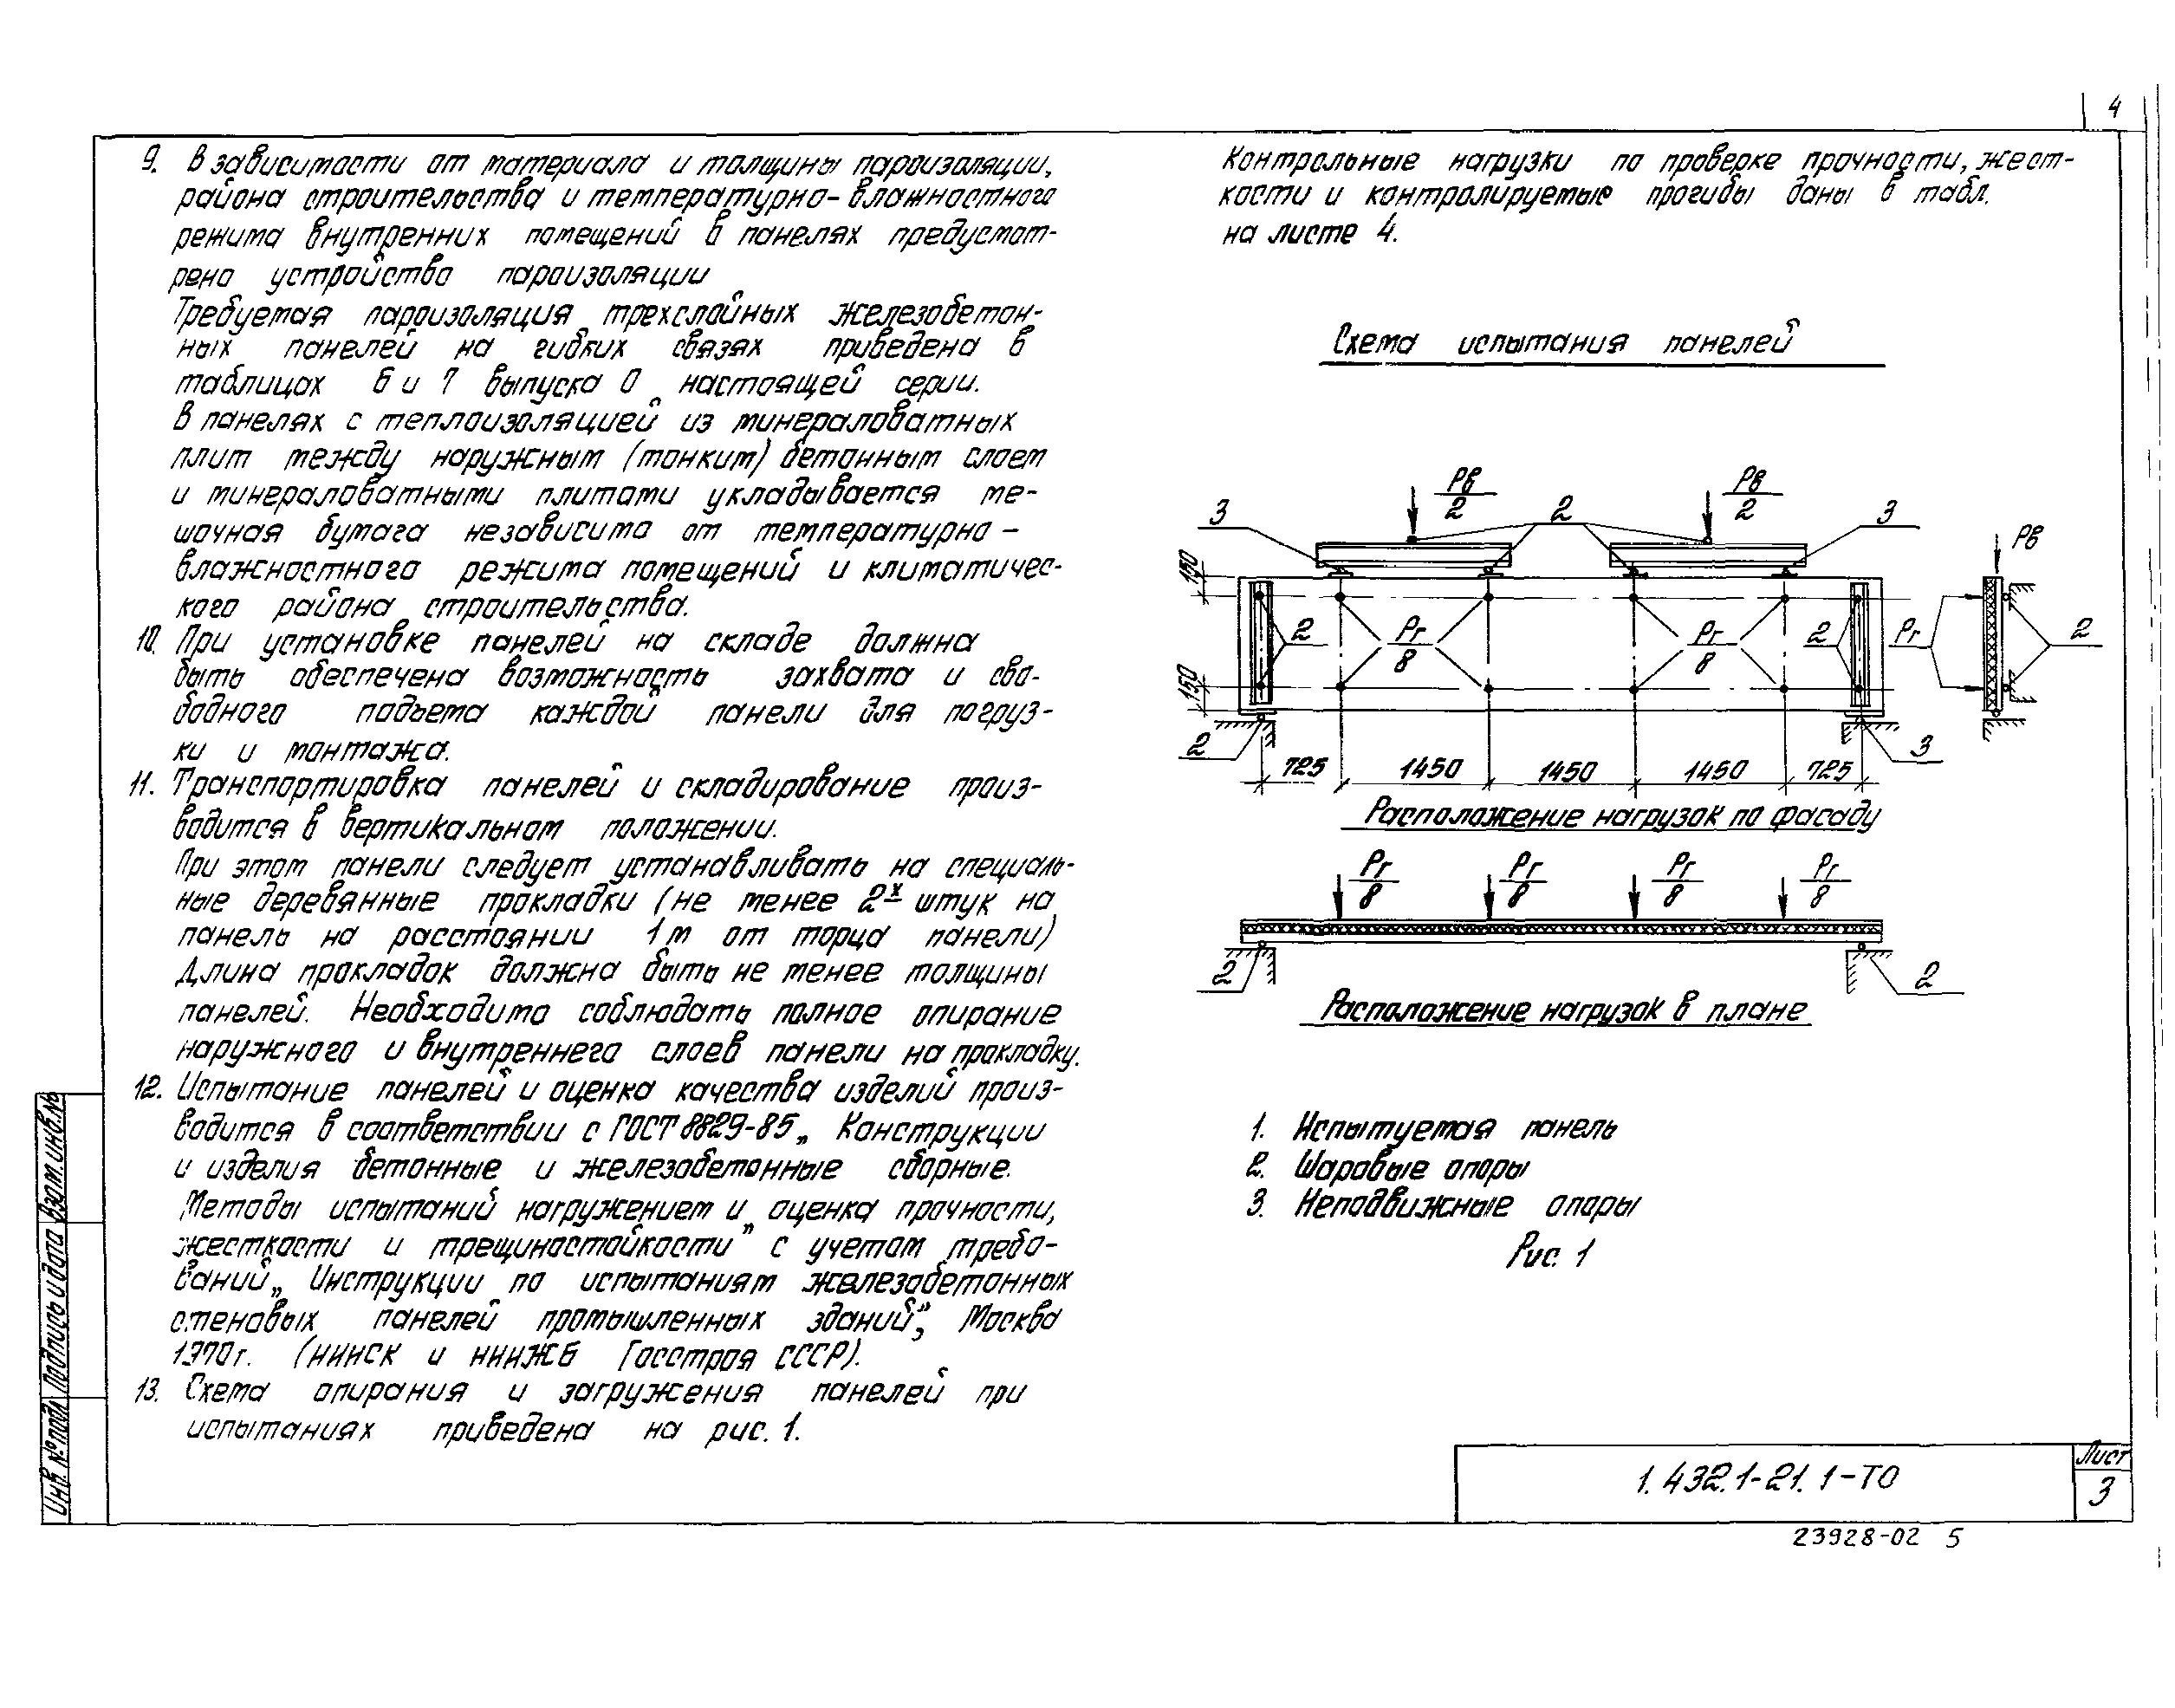 4
9. В зависимости от материала и толщины пароизоляции,
района строительства и температурно-влажностного
режима внутренних помещений в панелях предусмот-
рено устройство пароизоляции
Требуемая пароизоляция трехслойных железобетон-
ных панелей на гибких связях приведена в
таблицах 6 и 7 выпуска 0 настоящей серии.
В панелях с теплоизоляцией из минераловатных
плит между наружным (тонким) бетонным слоем
и минераловатными плитами укладывается ме-
шочная бумага независимо от температурно-
влажностного режима помещений и климатичес-
кого района строительства.
10. При установке панелей на складе должна
быть обеспечена возможность захвата и сво-
бодного подъема каждой панели для погруз-
ки и монтажа.
11. Транспортировка панелей и складирование произ-
водится в вертикальном положении.
При этом панели следует устанавливать на специаль-
ные деревянные прокладки (не менее 2х штук на
панель на расстоянии 1м от торца панели)
Длина прокладок должна быть не менее толщины
панелей. Необходимо соблюдать полное опирание
наружного и внутреннего слоев панели на прокладку.
12. Испытание панелей и оценка качества изделий произ-
водится в соответствии с ГОСТ 8829-85 „Конструкции
и изделия бетонные и железобетонные сборные.
Методы испытаний нагружением и „оценка прочности,
жесткости и трещиностойкости" с учетом требо-
ваний „Инструкции по испытаниям железобетонных
стеновых панелей промышленных зданий", Москва
1970г. (НИИСК и НИИЖБ Госстроя СССР).
13. Схема опирания и загружения панелей при
испытаниях приведена на рис. 1.
Контрольные нагрузки по проверке прочности, жест-
кости и контролируемые прогибы даны в табл.
на листе 4.
Схема испытания панелей
Рв
2
Рв
2
3
2
3
Рв
150
2
Рг
8
Рг
8
2
Рг
2
150
2
3
725
1450
1450
1450
725
Расположение нагрузок по фасаду
Рг
8
Рг
8
Рг
8
Рг
8
2
2
Расположение нагрузок в плане
1. Испытуемая панель
2. Шаровые опоры
3. Неподвижные опоры
Рис. 1
Инв. № подл.
Подпись и дата
Взам. инв. №
1.432.1-21.1-ТО
Лист
3
23928-02 5